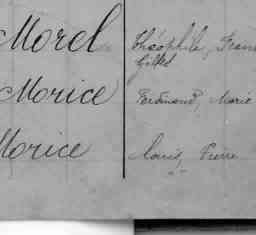 Morel Théophile, Fran
Gilles
Morice Ferdinand, Marie
Morice Louis, Pierre